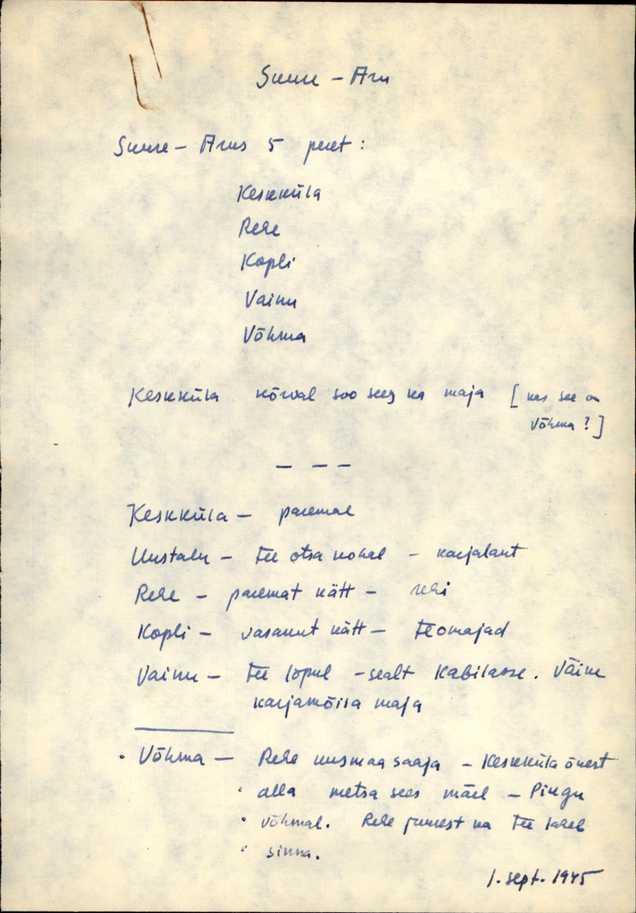 Suure - Aru
Suure - Arus 5 peret:
Keskküla
Rehe
Kopli
Vainu
Võhma
Keskküla kõrval soo sees ka maja [kas see on
Võhma?]
— — —
Keskküla - paremal
Uustalu - tee otsa kohal - karjalaut
Rehe - paremat kätt - rehi
Kopli - vasakut kätt - teomajad
Vainu - tee lõpul - sealt Kabilasse. Väinu
karjamõisa maja
Võhma - Rehe uusmaasaaja - Keskküla õuest
alla metsa sees mäel - Pingu
võhmal. Rehe juurest ka tee läheb
sinna.
1. sept. 1945